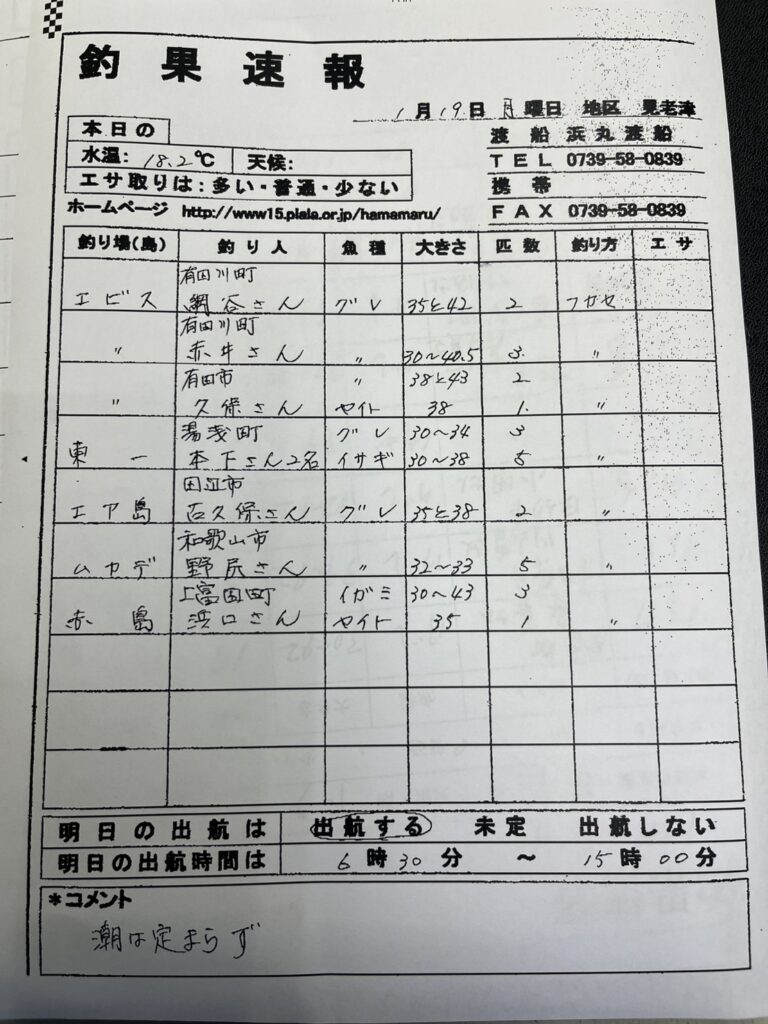 釣果速報
1月19日 月曜日 地区 見老津
本日の
水温: 18.2℃ 天候:
エサ取りは:多い・普通・少ない
渡船 浜丸渡船
TEL 0739-58-0839
携帯
FAX 0739-58-0839
ホームページ http://www15.plala.or.jp/hamamaru/
釣り場(島) 釣り人 魚種 大きさ 匹数 釣り方 エサ
有田川町
エビス 網谷さん グレ 35と42 2 フカセ
有田川町
〃 赤井さん 〃 30〜40.5 3 〃
有田市 〃 38と43 2
〃 久保さん ヤイト 38 1 〃
湯浅町 グレ 30〜34 3
東一 本下さん2名 イサギ 30〜38 5 〃
田辺市
エア島 古久保さん グレ 35と38 2 〃
和歌山市
ムカデ 野尻さん 〃 32〜33 5 〃
上富田町 イガミ 30〜43 3
赤島 浜口さん ヤイト 35 1 〃
明日の出航は 出航する 未定 出航しない
明日の出航時間は 6時30分 〜 15時00分
*コメント
潮は定まらず